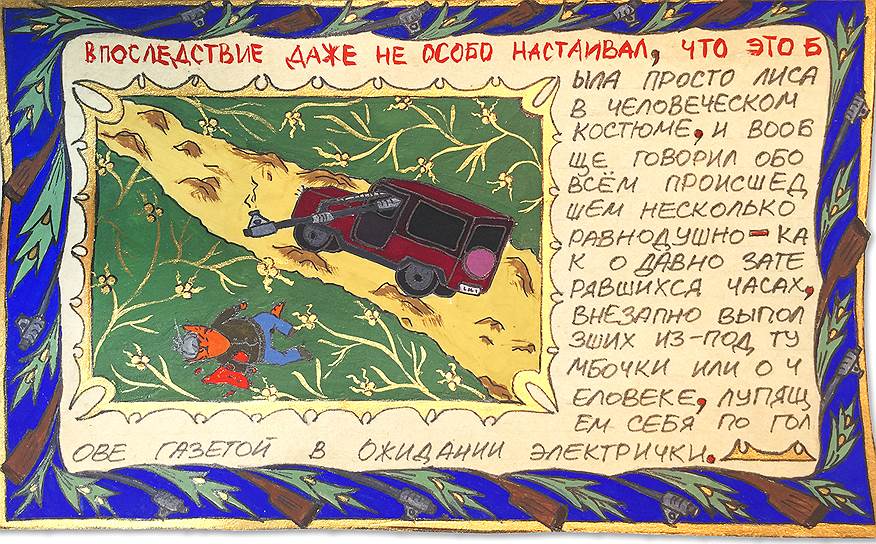 ВПОСЛЕДСТВИЕ ДАЖЕ НЕ ОСОБО НАСТАИВАЛ, ЧТО ЭТО Б
ЫЛА ПРОСТО ЛИСА
В ЧЕЛОВЕЧЕСКОМ
КОСТЮМЕ, И ВООБ
ЩЕ ГОВОРИЛ ОБО
ВСЁМ ПРОИСШЕД
ШЕМ НЕСКОЛЬКО
РАВНОДУШНО – КА
К О ДАВНО ЗАТЕ
РЯВШИХСЯ ЧАСАХ,
ВНЕЗАПНО ВЫПОЛ
ЗШИХ ИЗ-ПОД ТУ
МБОЧКИ ИЛИ О Ч
ЕЛОВЕКЕ, ЛУПЯЩ
ЕМ СЕБЯ ПО ГОЛ
ОВЕ ГАЗЕТОЙ В ОЖИДАНИИ ЭЛЕКТРИЧКИ.